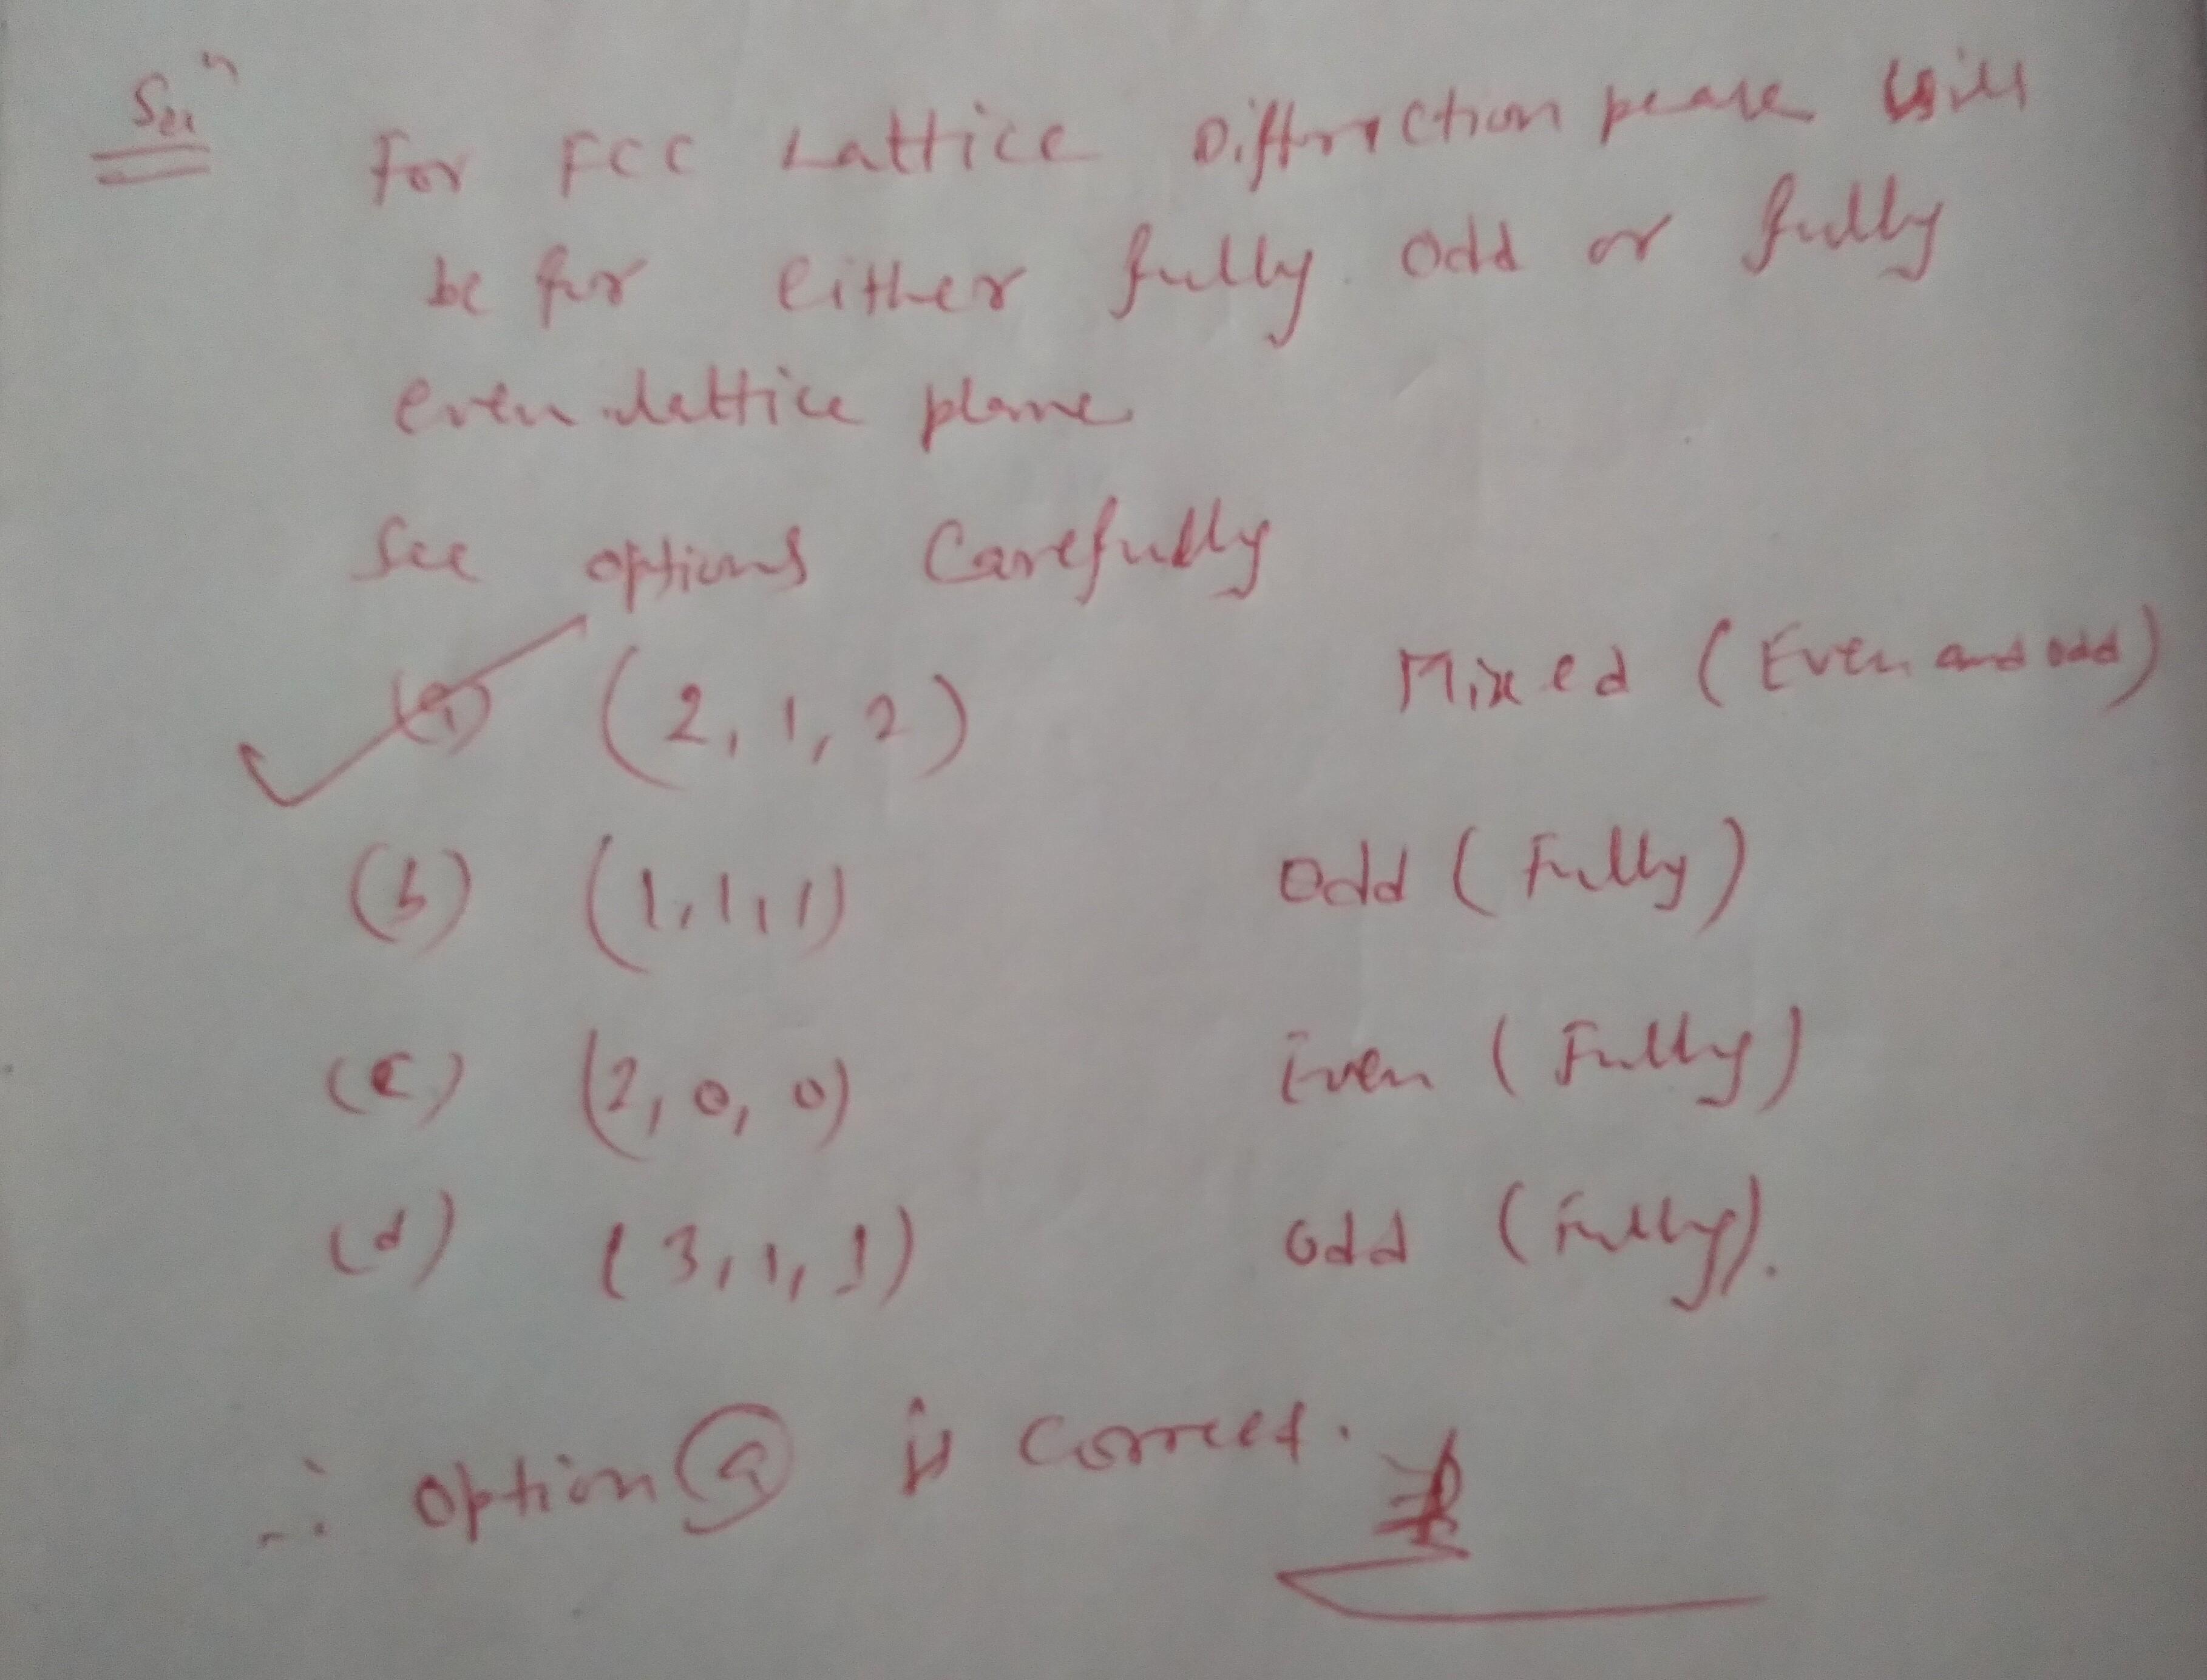 Soln
For FCC Lattice Diffraction peak will
be for either fully odd or fully
even lattice plane
See options Carefully
(a) (2, 1, 2) Mixed (Even and odd)
(b) (1, 1, 1) Odd (Fully)
(c) (2, 0, 0) Even (Fully)
(d) (3, 1, 1) Odd (Fully).
∴ Option (a) is correct.